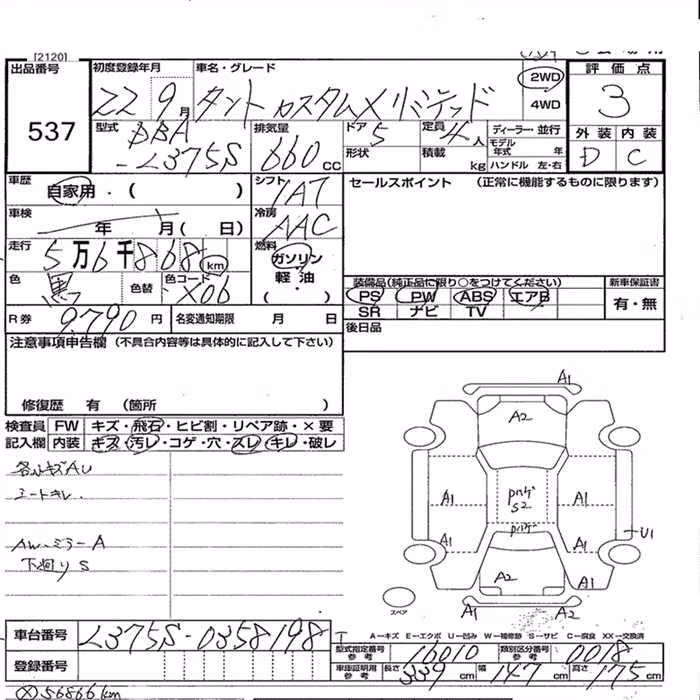 [2120]
出品番号
537
初度登録年月
22 9月
車名・グレード
タント カスタムX リミテッド
2WD
4WD
評価点
3
外装 内装
D C
型式
DBA
-L375S
排気量
660 cc
ドア 5
形状
定員 4人
積載 kg
ディーラー・並行
モデル年式 年
ハンドル 左・右
車歴
自家用・( )
シフト
IAT
セールスポイント (正常に機能するものに限ります)
車検
年 月( 日)
冷房
AAC
走行
5万6千868 km
燃料
ガソリン
軽油
( ・ )
色
黒
色替
色コード
X06
装備品(純正品に限り○をつけてください)
新車保証書
PS PW ABS エアB
SR ナビ TV
有・無
R券
9,790 円
名変通知期限 月 日
後日品
注意事項申告欄 (不具合内容等は具体的に記入して下さい)
修復歴 有 (箇所 )
検査員 FW キズ・飛石・ヒビ割・リペア跡・×要
記入欄 内装 キズ・汚レ・コゲ・穴・スレ・キレ・破レ
各小キズAU
シートキレ.
AW ミラーA
下廻りS
A1
A2
A1
A1
A1
A1
S2
U1
A2
A1
A2
スペア
A-キズ E-エクボ U-凹み W-補修跡 S-サビ C-腐食 XX-交換済
車台番号
L375S-0358198
登録番号
型式指定番号 参考
16010
類別区分番号 参考
0018
車庫証明用 参考
長さ 339 cm
幅 147 cm
高さ 175 cm
56866km